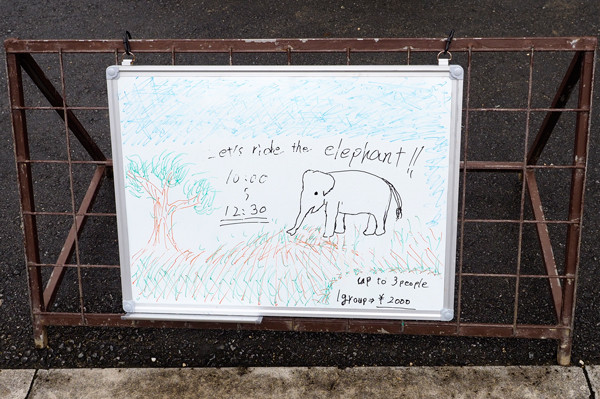 Let's ride the elephant!!
10:00
~
12:30
up to 3 people
1group→ ¥ 2000